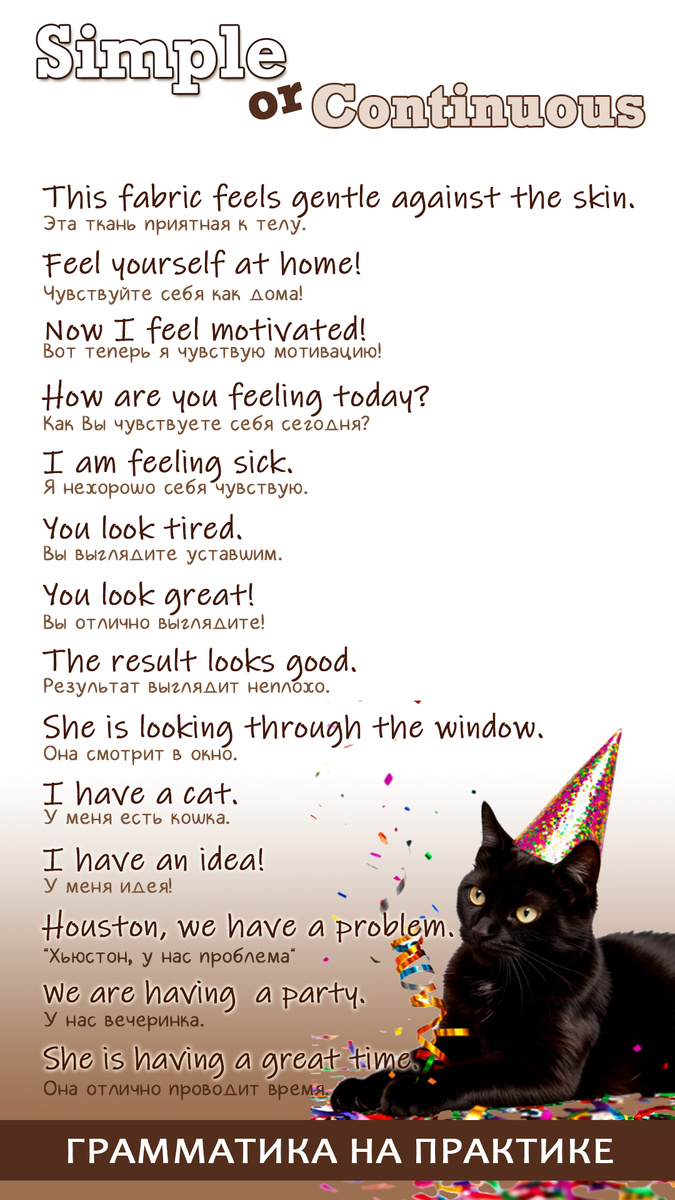 Simple
or Continuous
This fabric feels gentle against the skin.
Эта ткань приятная к телу.
Feel yourself at home!
Чувствуйте себя как дома!
Now I feel motivated!
Вот теперь я чувствую мотивацию!
How are you feeling today?
Как Вы чувствуете себя сегодня?
I am feeling sick.
Я нехорошо себя чувствую.
You look tired.
Вы выглядите уставшим.
You look great!
Вы отлично выглядите!
The result looks good.
Результат выглядит неплохо.
She is looking through the window.
Она смотрит в окно.
I have a cat.
У меня есть кошка.
I have an idea!
У меня идея!
Houston, we have a problem.
"Хьюстон, у нас проблема"
We are having a party.
У нас вечеринка.
She is having a great time.
Она отлично проводит время.
ГРАММАТИКА НА ПРАКТИКЕ